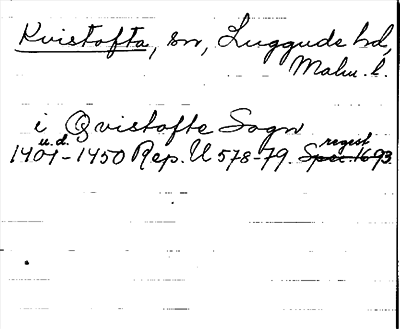 Kvistofta, sn, Luggude hd,
Malm. l.
i Qvistofte Sogn
u.d. regest
1401-1450 Rep. U 578-79. Spec. 1693.